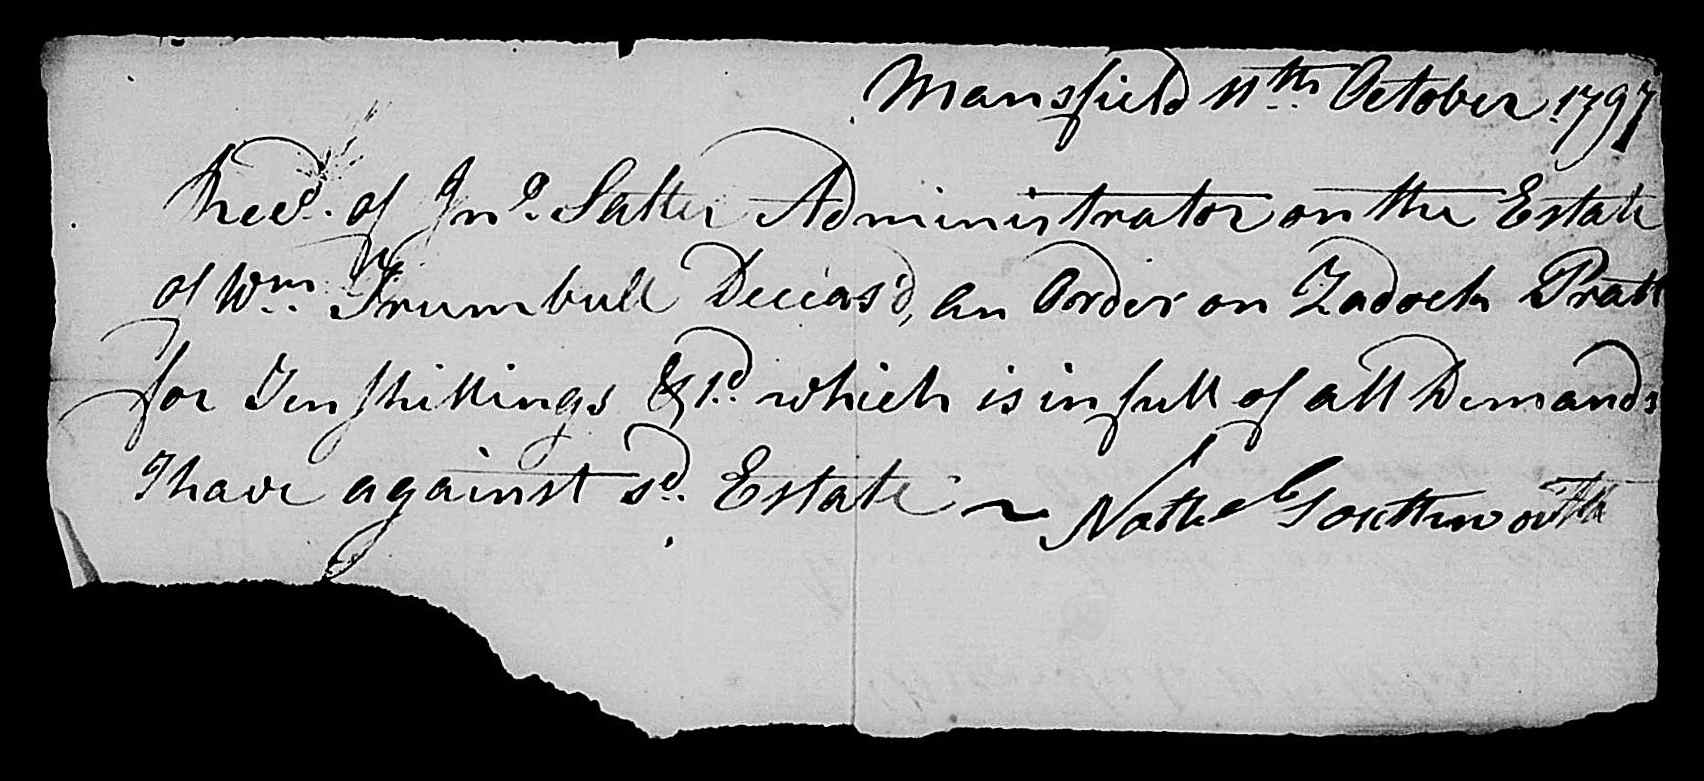 Mansfield 11th October 1797
Reced. of Jno. Salter Administrator on the Estate
of Wm. Trumbull Deceas'd, an Order on Zadock Pratt
for Ten shillings & 1d. which is in full of all Demands
I have against sd. Estate ~ Nathl Southworth